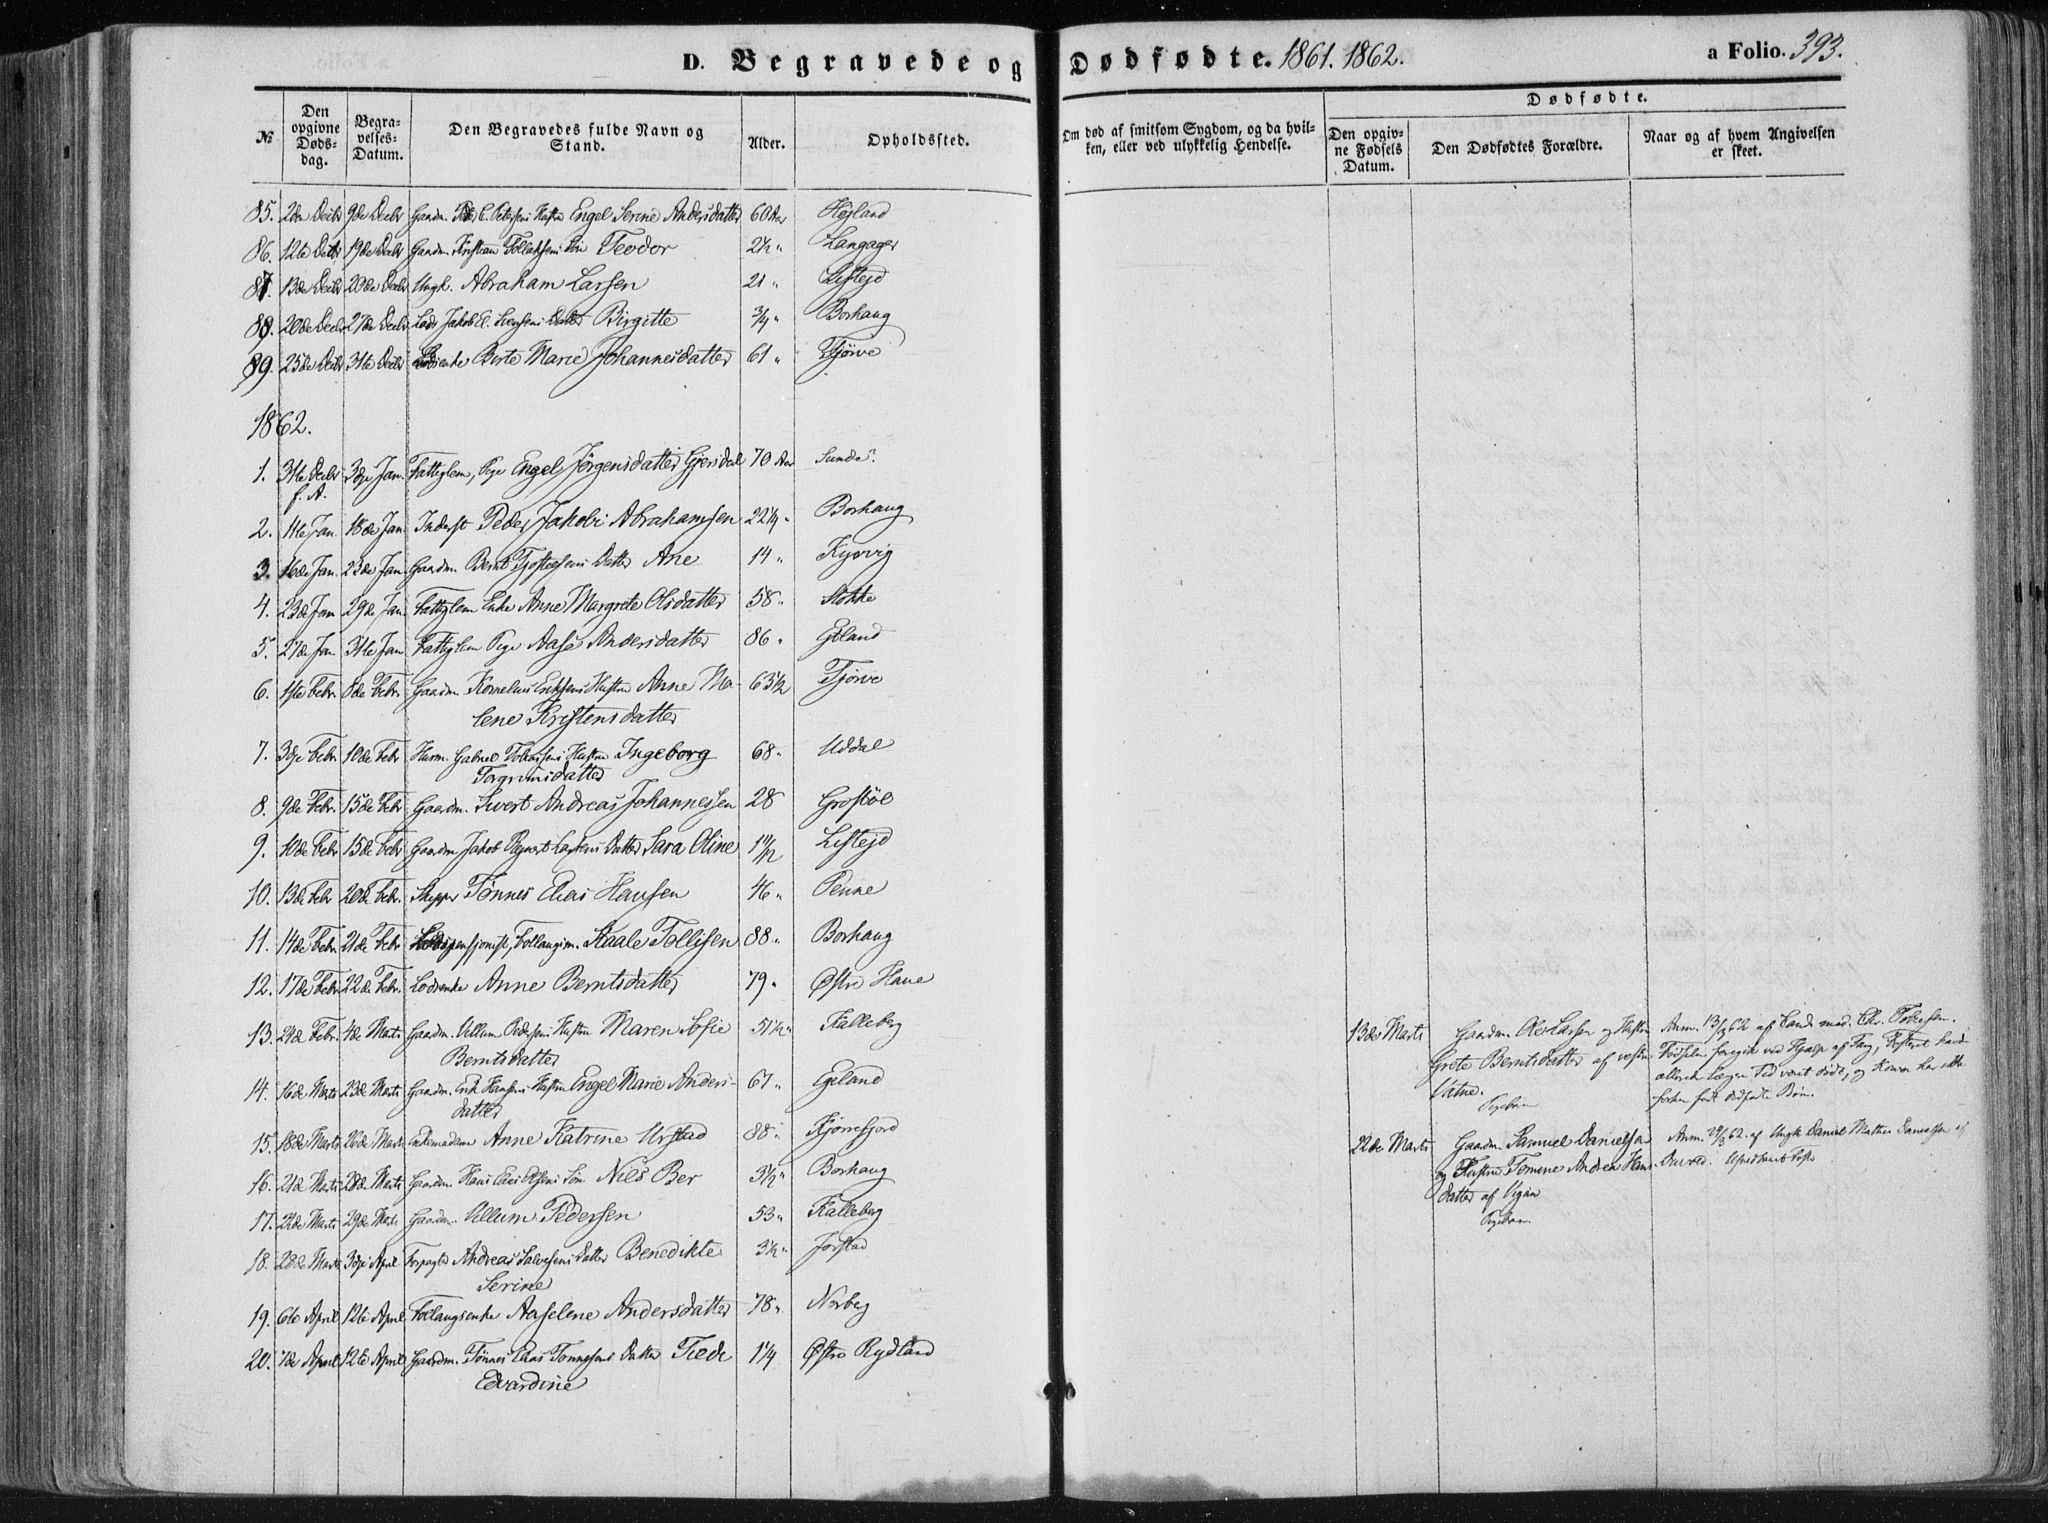 D. Begravede og Dødfødte. 1861. 1862. a Folio. 393.
№ Den opgivne Dødsdag. Begravelses-Datum. Den Begravedes fulde Navn og Stand. Alder. Opholdssted. Om død af smitsom Sygdom, og da hvilken, eller ved ulykkelig Hendelse. Dødfødte. Den opgivne Fødsels Datum. Den Dødfødtes Forældre. Naar og af hvem Angivelsen er skeet.
85. 2den Decbr 9de Decbr Gaardm. Peder C. Petersens Hustru Engel Serine Andersdatter 60 Aar Højland
86. 12te Decbr 19de Decbr Gaardm. Kristian Tollaksens Søn Teodor 2½ " Langager
87. 13de Decbr 20de Decbr Ungk. Abraham Larsen 21 " Listejd
88. 20de Decbr 27de Decbr Lods Jakob E. Svensens Datter Birgitte ¾ " Borhaug
89. 25de Decbr 31te Decbr Lodsenke Berte Marie Johannesdatter 61 " Tjørve
1862.
1. 31te Decbr f. A. 3dje Jan. Fattiglem, Pige Engel Jørgensdatter Gjersdal 70 Aar Sunde
2. 11te Jan 18de Jan Inderst Peder Jakobi Abrahamsen 22¼ " Borhaug
3. 16de Jan. 23de Jan. Gaardm. Bernt Tjostelsens Datter Ane 14 " Kjørvig
4. 23de Jan 29de Jan Fattiglem Enke Anne Margrete Olsdatter 58 " Stokke
5. 27de Jan 31te Jan Fattiglem Pige Aase Andersdatter 86 " Etland
6. 1ste Febr. 8de Febr. Gaardm. Kornelius Eriksens Hustru Anne Ma- 63½ Tjørve
lene Kristensdatter
7. 3dje Febr. 10de Febr Husm. Gabriel Tollaksens Hustru Ingeborg 68 " Uddal
Torgrimsdatter
8. 9de Febr. 15de Febr Gaardm. Sivert Andreas Johannessen 28 Grostøl
9. 10de Febr. 15de Febr Gaardm. Jakob Reinert Larsens Datter Sara Oline 1 11/12 Listejd
10. 13de Febr 20de Febr. Skipper Tønnes Elias Hansen 46 " Penne
11. 14de Febr. 21de Febr Lodspensjonist, Follaugsm. Staale Tollisen 88 " Borhaug
12. 17de Febr 22de Febr. Lodsenke Anne Berntsdatter 79 " Østre Haue
13. 24de Febr. 4de Marts Gaardm. Villum Pedersens Hustru Maren Sofie 51½ " Kalleberg
Berntsdatter
14. 16de Marts 23de Marts Gaardm. Erik Hansens Hustru Engel Marie Anders- 67 " Egeland
datter
15. 18de Marts 26de Marts Enkemadam Anne Katrine Urstad 88 " Kjørrefjord
16. 21de Marts 28de Marts Gaardm. Hans Elias Olsens Søn Nils Ber 3½ " Borhaug
17. 22de Marts 29de Marts Gaardm. Villum Pedersen 53 " Kalleberg
18. 28de Marts 3dje April Forpagter Andreas Salvesens Datter Benedikte 3½ " Jørstad
Serine
19. 6te April 12te April Follaugsenke Aaselene Andersdatter 78 " Norberg
20. 7de April 12te April Gaardm. Tønnes Elias Tønnesens Datter Trede 1¼ Østre Rydland
Edvardine
13de Marts Gaardm. Ole Larsen og Hustru
Grete Berntsdatter af vestre
Vatne.
Pigebarn
Anm. 13/3 62 af Cand. med. Chr. Tobiesen.
Fødselen foregik ved Hjælp af Tang, Fosteret havde
allerede længere Tid været dødt, og Konen har ikke
forhen født dødfødte Børn.
22de Marts Gaardm. Samuel Danielsen
og Hustru Tomine Andrea Hans-
datter af Vigan
Pigebarn.
Anm. 24/3 62. af Ungk. Daniel Mathias Danielsen